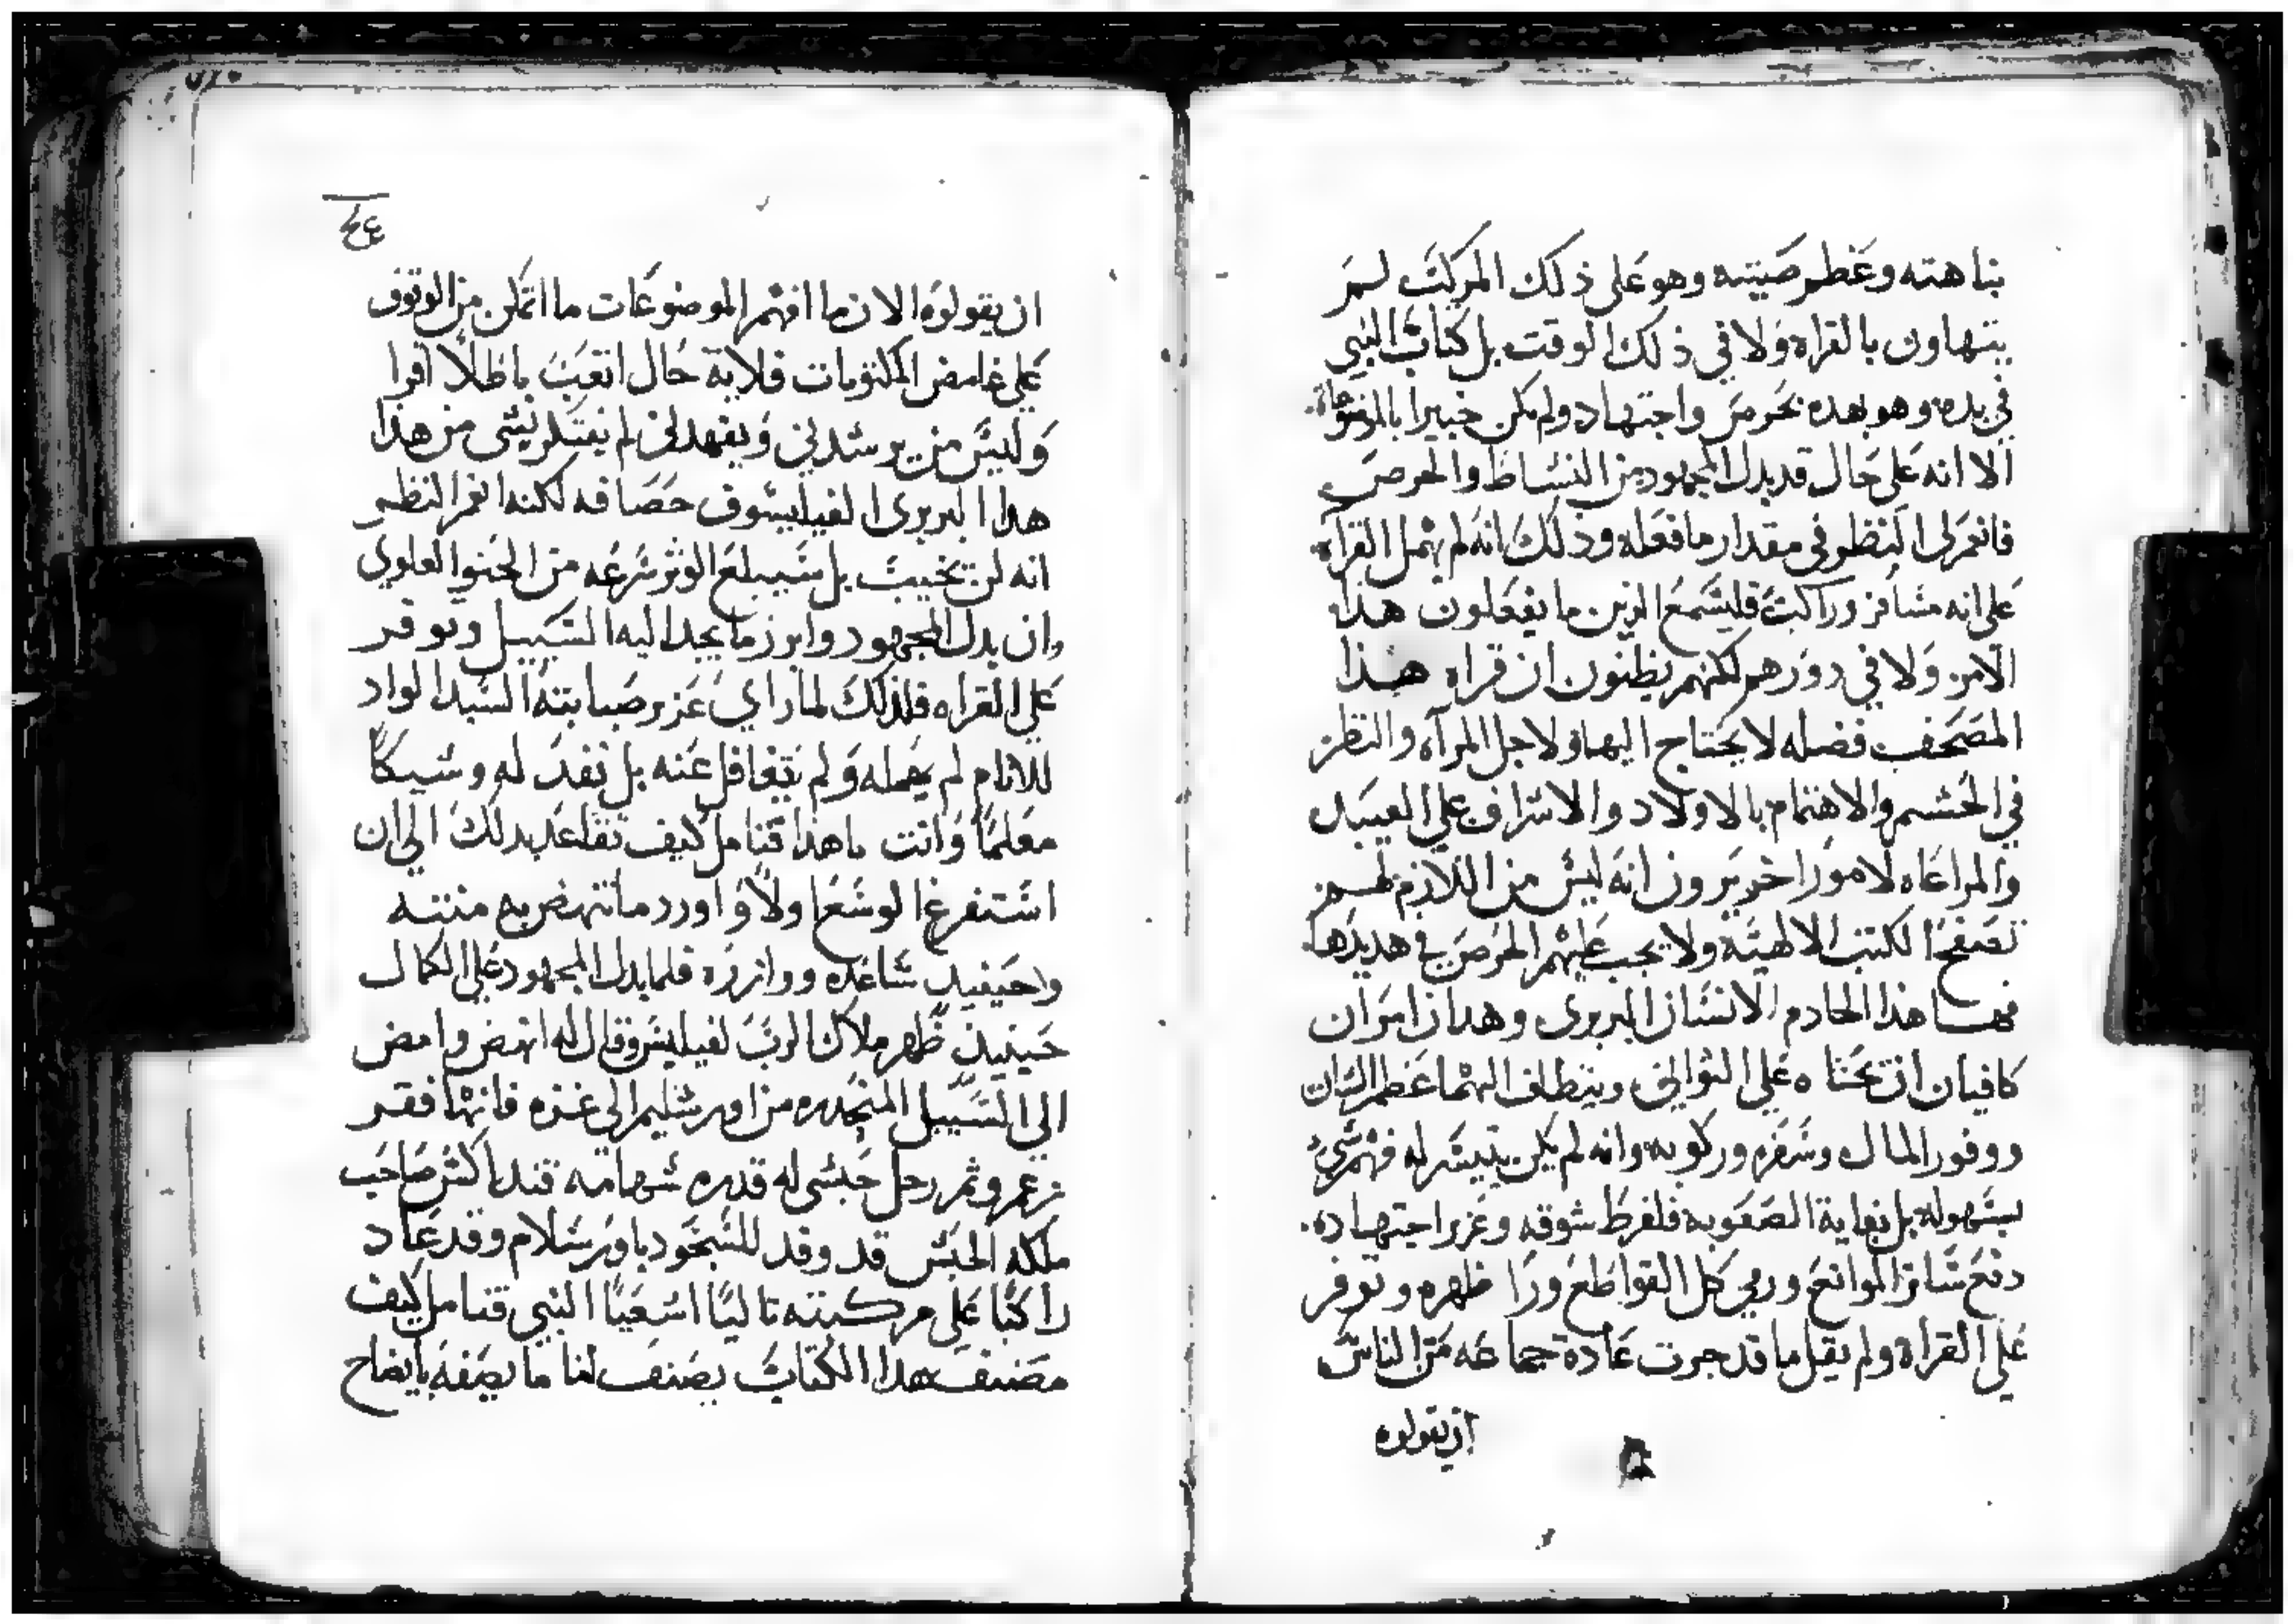 بناهته وعظم صيته وهو على ذلك المركب لم
يتهاون بالقراه ولا في ذلك الوقت بل كتاب النبي
في يده وهو يهده بحرص واجتهاد ولم يكن خبيرا بالموضوعات
الا انه على حال قد بدل المجهود من النشاط والحرص
فانعم لي النظر في مقدار ما فعله وذلك انه لم يهمل القراه
على انه مسافر وراكب فليسمع الذين ما يفعلون هذا
الامر ولا في دورهم لكنهم يظنون ان قراه هذا
المصحف فضله لا يحتاج اليها ولاجل المراه والنظر
في الحشم والاهتمام بالاولاد والاشراف على العبيد
والمراعاه لامور اخر يرون انه ليس من اللازم لهم
تصفح الكتب الالهية ولا يجب عليهم الحرص في هديدها
فها هذا الخادم الانسان البربري وهدان امران
كافيان ان تحتاه على التواني وينطاف اليهما عظم الشان
ووفور المال وسفره وركوبه وانه لم يكن يتيسر له فهم شي
بسهوله بل بغاية الصعوبه فلفرط شوقه وغزر اجتهاده
دفع سائر الموانع ورمي كل القواطع ورا ظهره وتوفر
على القراه ولم يقل ما قد جرت عادة جماعه من الناس
ان يقولوه
ان يقولوه الان ما افهم الموضوعات ما اتمكن من الوقوف
على غامض المكتومات فلاية حال اتعب باطلا اقرا
وليس من يرشدني ويفهدني لم يفتكر بشي من هذا
هذا البربري الفيلسوف حصافه لكنه انعم النظر
انه لن يخيب بل سيبلغ الوثر سرعه من الحنو العلوي
وان بدل المجهود وابرز ما يجد اليه السبيل وتوفر
على القراه فلذلك لما راي غزر صبابته السيد الواد
للانام لم يهمله ولم يتغافل عنه بل نفد له وشيكا
معلما وانت ياهذا فتامل كيف تقاعد بدلك الى ان
استفرغ الوسع اولا واورد ما تنهض به منته
واحينيد ساعده ووازره فلما بدل المجهود على الكمال
حينيد ظهر ملاك الرب لفيلبس وقال له انهض وامض
الى السبيل المنحدره من اورشليم الى غزه فانها فقر
زعم وثم رجل حبشي له قدره شهامته قنداكس صاحب
ملكه الحبش قد وفد للسجود باورشلام وقد عاد
راكبا على مركبته تاليا اشعيا النبي فتامل كيف
مصنف هدا الكتاب يصنف لنا ما يصفه بايضاح